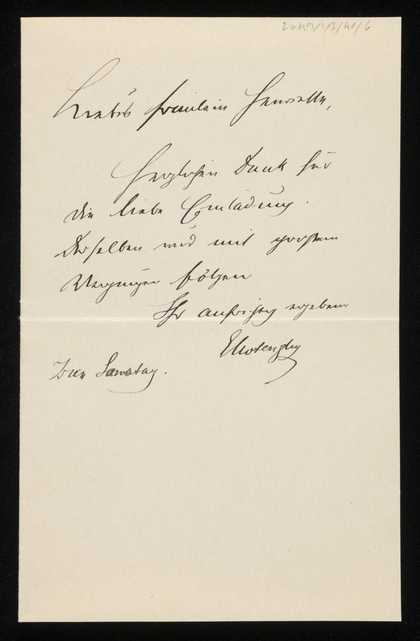 Liebes Fräulein Henriette,
Herzlichen Dank für
die liebe Einladung.
Derselben wird mit großem
Vergnügen folgen
Ihr aufrichtig ergebener
Samstag.